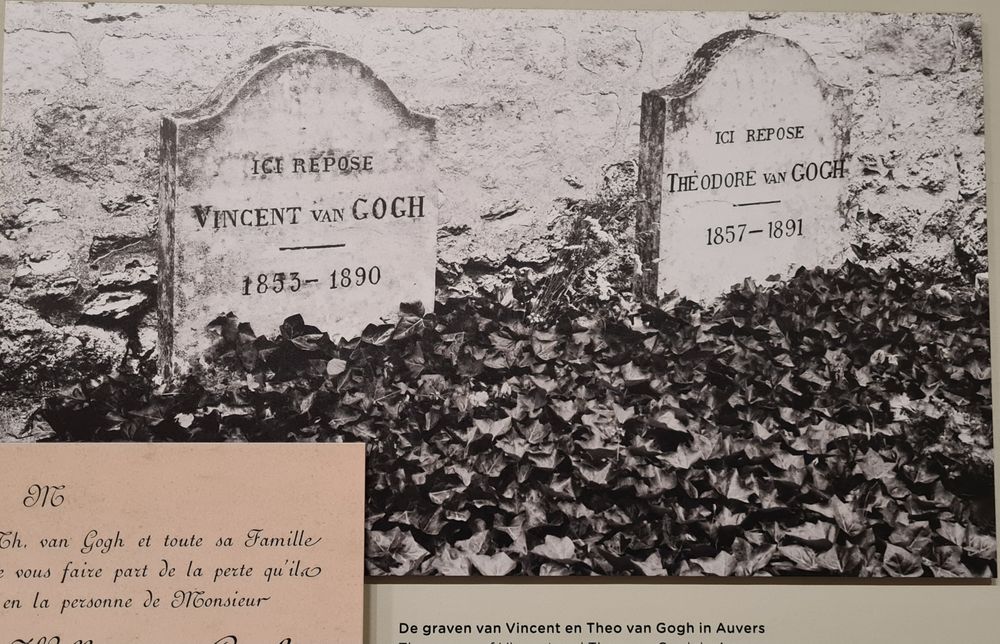 ICI REPOSE
VINCENT VAN GOGH
1853-1890
ICI REPOSE
THÉODORE VAN GOGH
1857-1891
M
Th. van Gogh et toute sa Famille
vous faire part de la perte qu'ils
en la personne de Monsieur
De graven van Vincent en Theo van Gogh in Auvers